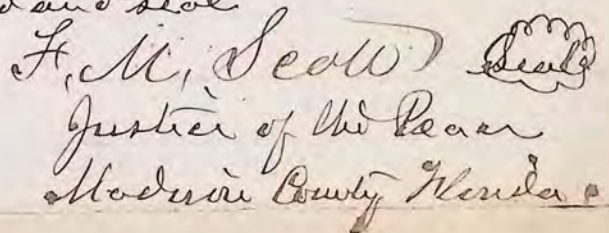 and seal
F. M. Scott Seal
Justice of the Peace
Madison County Florida.